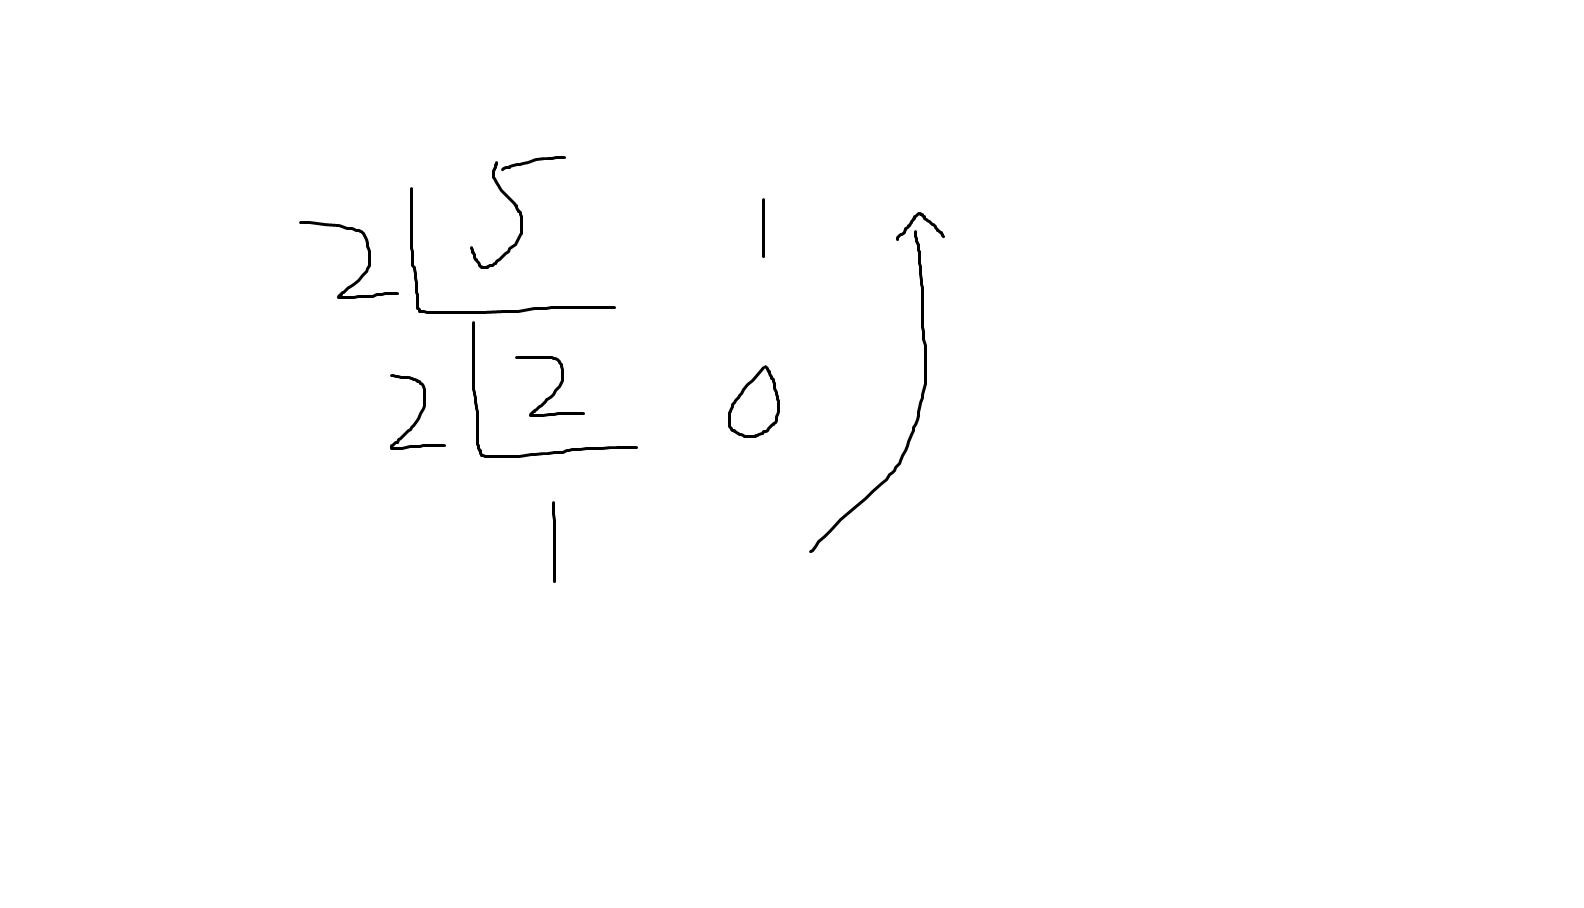 2 5 1
2 2 0
1